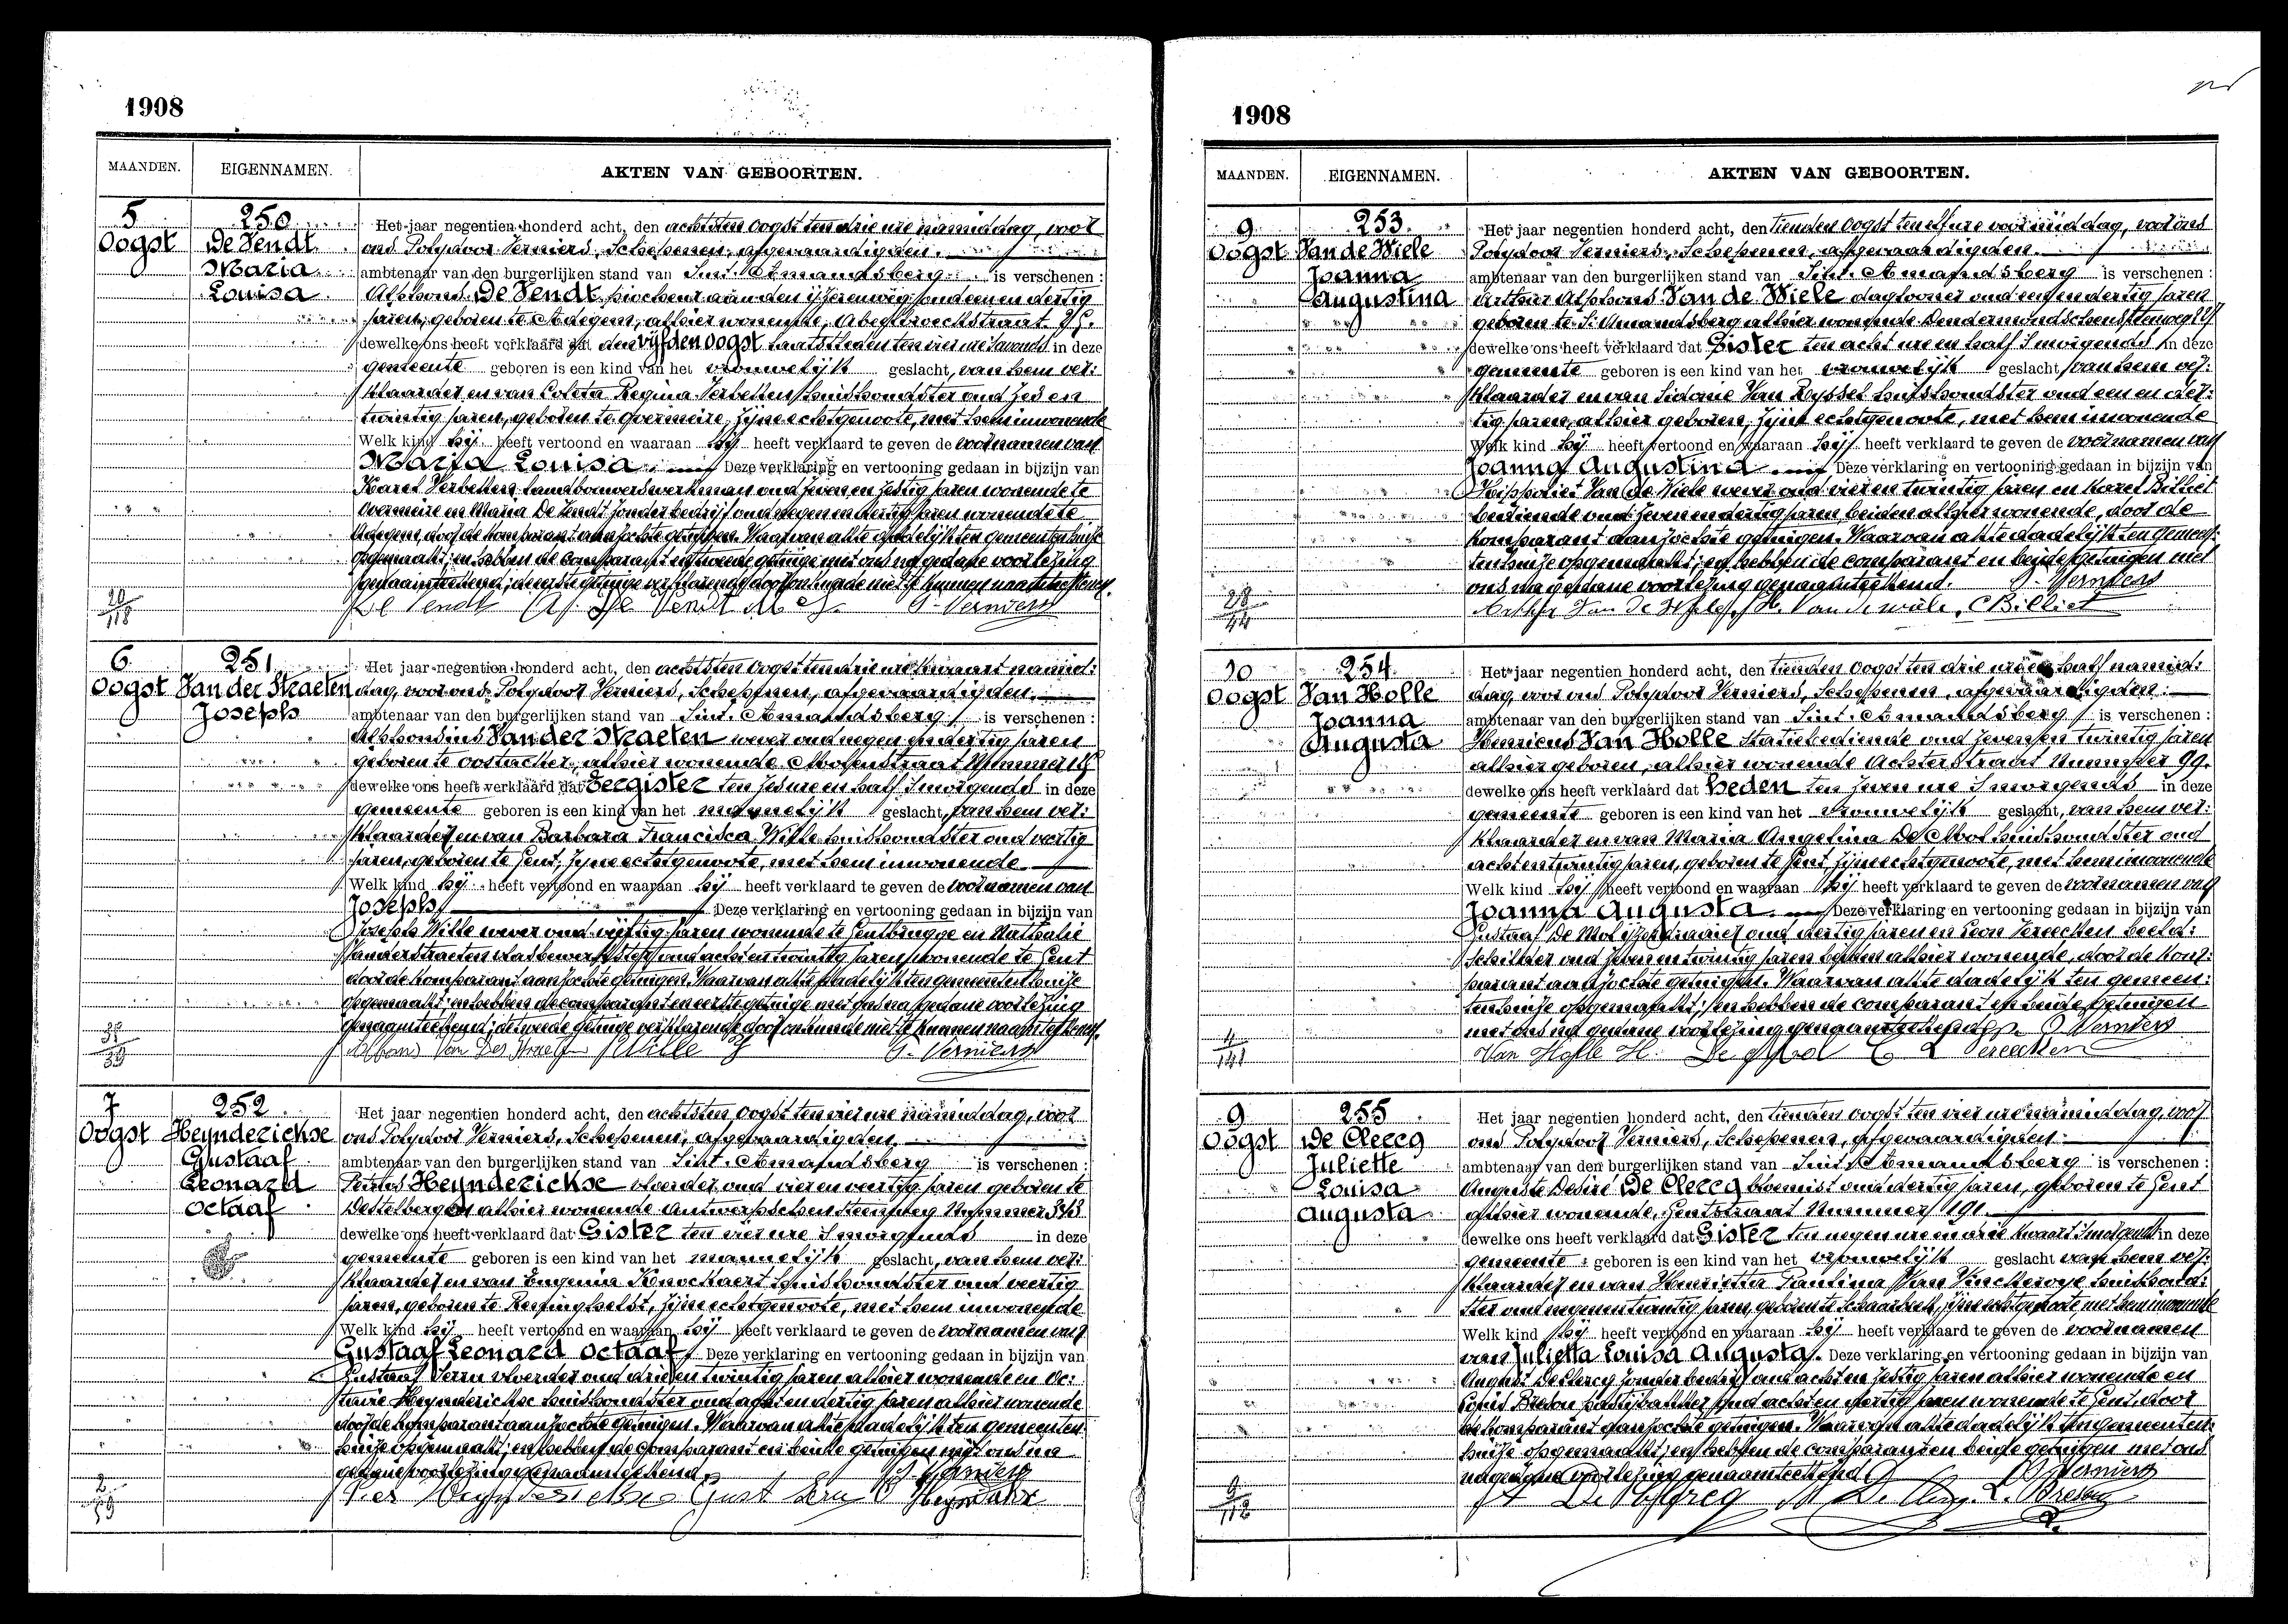 1908
MAANDEN. EIGENNAMEN. AKTEN VAN GEBOORTEN.
5 Oogst
250
De Vendt
Maria
Louisa
Het jaar negentien honderd acht, den achtsten Oogst ten drie ure namiddag, voor
ons Polydoor Verniers, Schepenen, afgevaardigden
ambtenaar van den burgerlijken stand van Sint-Amandsberg is verschenen :
Alphons De Vendt piocheur aan den ijzerenweg, oud een en dertig
jaren, geboren te Adegem, alhier wonende, Abeelbroeckstraat
dewelke ons heeft verklaard dat den vijfden Oogst laatstleden ten vier ure 's avonds in deze
gemeente geboren is een kind van het vrouwelijk geslacht, van hem ver:
klaarder en van Coleta Regina Verbetten, huishoudster oud zes en
twintig jaren, geboren te Overmeire, zijne echtgenoote, met hem inwonende
Welk kind hij heeft vertoond en waaraan hij heeft verklaard te geven de voornamen van
Maria Louisa Deze verklaring en vertooning gedaan in bijzijn van
Karel Verbetten, landbouwerswerkman oud zeven en zestig jaren wonende te
Overmeire en Maria De Vendt zonder bedrijf oud negen en dertig jaren wonende te
Adegem, door de komparant aanzochte getuigen. Waarvan akte dadelijk ten gemeentenhuize
opgemaakt; en hebben de comparant en tweede getuige met ons na gedane voorlezing
genaamteekend; de eerste getuige verklarende door onkunde niet te kunnen naamteekenen.
De Vendt P. Verniers
6 Oogst
251
Van der Straeten
Joseph
Het jaar negentien honderd acht, den achtsten Oogst ten drie ure kwaart namid:
dag, voor ons Polydoor Verniers, Schepenen, afgevaardigden
ambtenaar van den burgerlijken stand van Sint-Amandsberg is verschenen :
Alphonsius Van der Straeten wever oud negen en dertig jaren
geboren te Oostacker, alhier wonende Molenstraat Nummer
dewelke ons heeft verklaard dat Eergister ten zes ure en half 's morgends in deze
gemeente geboren is een kind van het mannelijk geslacht, van hem ver:
klaarder en van Barbara Francisca Wille huishoudster oud veertig
jaren, geboren te Gent, zijne echtgenoote, met hem inwonende
Welk kind hij heeft vertoond en waaraan hij heeft verklaard te geven de voornamen van
Joseph Deze verklaring en vertooning gedaan in bijzijn van
Joseph Wille wever oud vijftig jaren wonende te Gentbrugge en Nathalie
Vanderstraeten oud acht en twintig jaren wonende te Gent
door de komparant aanzochte getuigen. Waarvan akte dadelijk ten gemeentenhuize
opgemaakt; en hebben de comparant en eerste getuige met ons na gedane voorlezing
genaamteekend; de tweede getuige verklarende door onkunde niet te kunnen naamteekenen.
Alfons Van Der Straeten J Wille P. Verniers
7 Oogst
252
Heynderickse
Gustaaf
Leonard
Octaaf
Het jaar negentien honderd acht, den achtsten Oogst ten vier ure namiddag, voor
ons Polydoor Verniers, Schepenen, afgevaardigden
ambtenaar van den burgerlijken stand van Sint-Amandsberg is verschenen :
Petrus Heynderickse voerder oud vier en veertig jaren geboren te
Destelbergen alhier wonende Antwerpschen Steenweg Nummer 343
dewelke ons heeft verklaard dat Gister ten vier ure 's morgends in deze
gemeente geboren is een kind van het mannelijk geslacht, van hem ver:
klaarder en van Eugenia Knockaert huishoudster oud veertig
jaren, geboren te Ressinghelst, zijne echtgenoote, met hem inwonende
Welk kind hij heeft vertoond en waaraan hij heeft verklaard te geven de voornamen van
Gustaaf Leonard Octaaf Deze verklaring en vertooning gedaan in bijzijn van
Gustaaf voerder oud drie en twintig jaren alhier wonende en Oc:
tavie Heynderickse huishoudster oud acht en dertig jaren alhier wonende
door de komparant aanzochte getuigen. Waarvan akte dadelijk ten gemeenten:
huize opgemaakt; en hebben de comparant en beide getuigen met ons na
gedane voorlezing genaamteekend.
P. Verniers
1908
MAANDEN. EIGENNAMEN. AKTEN VAN GEBOORTEN.
9 Oogst
253
Van de Wiele
Joanna
Augustina
Het jaar negentien honderd acht, den tienden Oogst ten elf ure voormiddag, voor ons
Polydoor Verniers, Schepenen, afgevaardigden
ambtenaar van den burgerlijken stand van Sint-Amandsberg is verschenen :
Arthur Alphons Van de Wiele daglooner oud een en dertig jaren
geboren te St Amandsberg alhier wonende Dendermondschensteenweg
dewelke ons heeft verklaard dat Gister ten acht ure en half 's morgends in deze
gemeente geboren is een kind van het vrouwelijk geslacht, van hem ver:
klaarder en van Sidonie Van Reyssel huishoudster oud een en der:
tig jaren, alhier geboren, zijne echtgenoote, met hem inwonende
Welk kind hij heeft vertoond en waaraan hij heeft verklaard te geven de voornamen van
Joanna Augustina Deze verklaring en vertooning gedaan in bijzijn van
Hippoliet Van de Wiele wever oud vier en twintig jaren en Karel Billiet
bediende oud zeven en dertig jaren, beiden alhier wonende, door de
komparant aanzochte getuigen. Waarvan akte dadelijk ten gemeen:
tenhuize opgemaakt; en hebben de comparant en beide getuigen met
ons na gedane voorlezing genaamteekend. P. Verniers
Arthur Van de Wiele, H. Van de wiele, C Billiet
10 Oogst
254
Van Holle
Joanna
Augusta
Het jaar negentien honderd acht, den tienden Oogst ten drie ure en half namid:
dag, voor ons Polydoor Verniers, Schepenen, afgevaardigden
ambtenaar van den burgerlijken stand van Sint-Amandsberg is verschenen :
Henricus Van Holle statiebediende oud zeven en twintig jaren
alhier geboren, alhier wonende Achterstraat Nummer 99.
dewelke ons heeft verklaard dat Heden ten zeven ure 's morgends in deze
gemeente geboren is een kind van het vrouwelijk geslacht, van hem ver:
klaarder en van Maria Angelina De Mol huishoudster oud
acht en twintig jaren, geboren te Gent, zijne echtgenoote, met hem inwonende
Welk kind hij heeft vertoond en waaraan hij heeft verklaard te geven de voornamen van
Joanna Augusta Deze verklaring en vertooning gedaan in bijzijn van
Gustaaf De Mol oud dertig jaren en Leon Vereecken beeld:
schilder oud zeven en twintig jaren beiden alhier wonende, door de kom:
parant aanzochte getuigen. Waarvan akte dadelijk ten gemeen:
tenhuize opgemaakt; en hebben de comparant en beide getuigen
met ons na gedane voorlezing genaamteekend. P. Verniers
Van Holle H. De Mol G L Vereecken
9 Oogst
255
De Clercq
Juliette
Louisa
Augusta
Het jaar negentien honderd acht, den tienden Oogst ten vier ure namiddag, voor
ons Polydoor Verniers, Schepenen, afgevaardigden
ambtenaar van den burgerlijken stand van Sint-Amandsberg is verschenen :
Auguste Desiré De Clercq bloemist oud dertig jaren, geboren te Gent
alhier wonende, Gentstraat Nummer 191.
dewelke ons heeft verklaard dat Gister ten negen ure en drie kwaart 's morgends in deze
gemeente geboren is een kind van het vrouwelijk geslacht van hem ver:
klaarder en van Henrietta Paulina Van Vinckeroye huishoud:
ster oud negen en twintig jaren, geboren te Schaarbeek, zijne echtgenoote met hem inwonende
Welk kind hij heeft vertoond en waaraan hij heeft verklaard te geven de voornamen
van Julietta Louisa Augusta. Deze verklaring en vertooning gedaan in bijzijn van
August De Clercq zonder bedrijf oud acht en zestig jaren alhier wonende en
Louis Bresou pasteibakker oud acht en veertig jaren wonende te Gent, door
de komparant aanzochte getuigen. Waarvan akte dadelijk ten gemeenten:
huize opgemaakt; en hebben de comparant en beide getuigen met ons
na gedane voorlezing genaamteekend P. Verniers